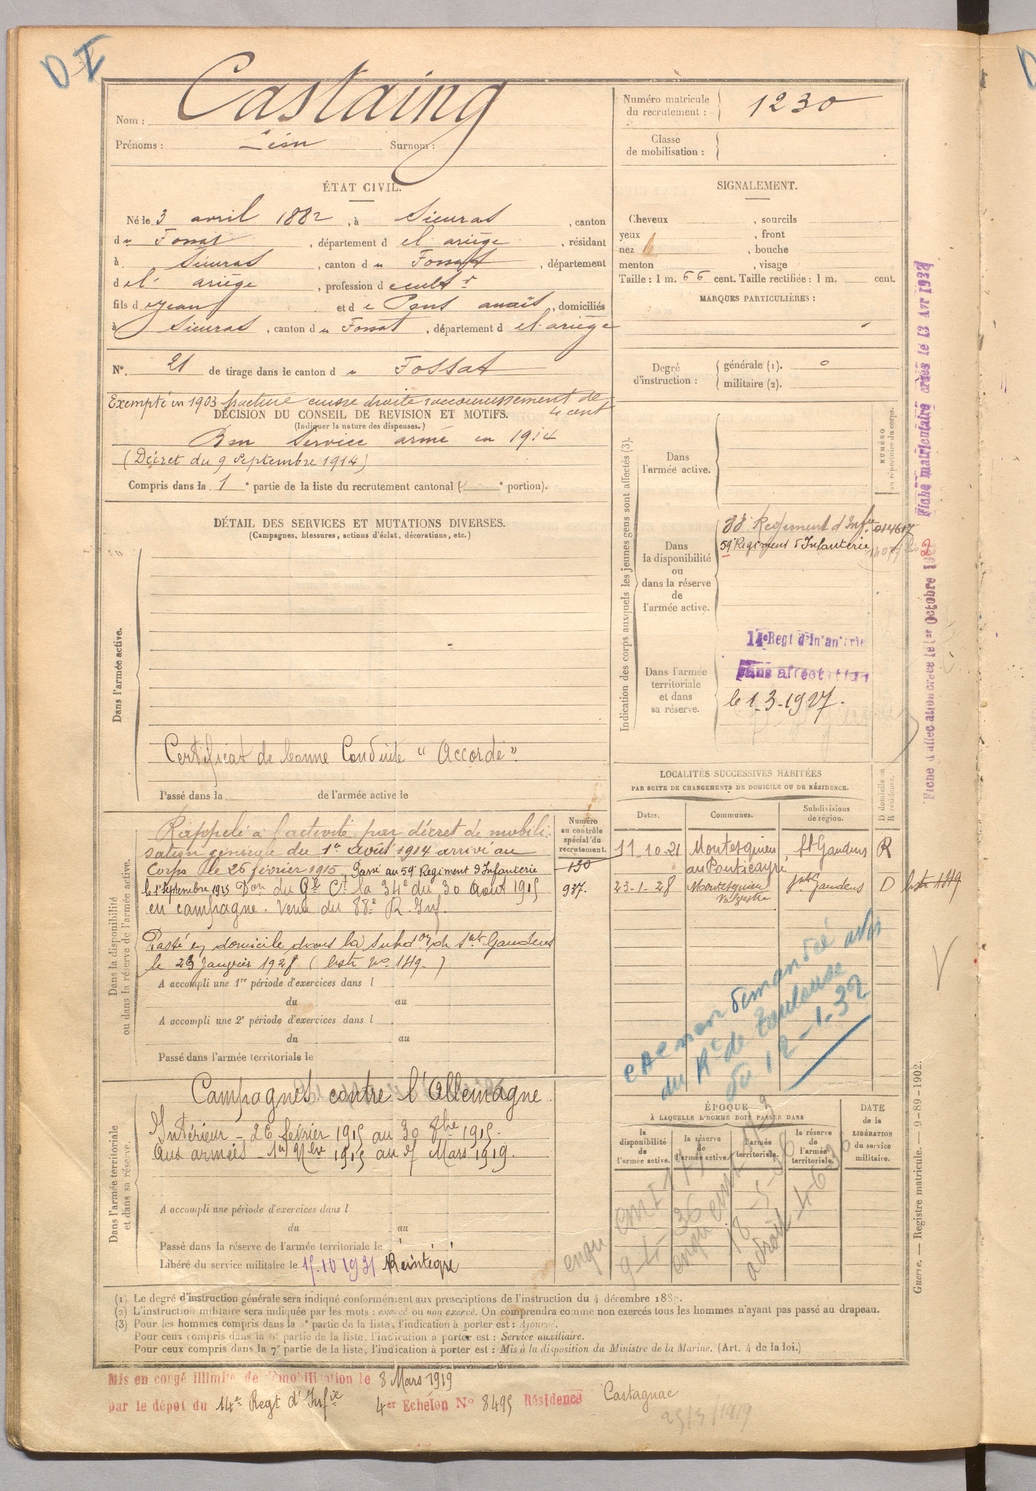 D I
Nom : Castaing
Prénoms : Léon Surnom :
Numéro matricule
du recrutement : 1230
Classe
de mobilisation :
ÉTAT CIVIL.
Né le 3 avril 1882, à Sieuras, canton
du Fossat, département de l'ariège, résidant
à Sieuras, canton du Fossat, département
de l' ariège, profession de cultr
fils de Jean et de Pons anaïs, domiciliés
à Sieuras, canton du Fossat, département de l'ariège
N° 21 de tirage dans le canton du Fossat
SIGNALEMENT.
Cheveux , sourcils
yeux , front
nez , bouche
menton , visage
Taille : 1 m. 66 cent. Taille rectifiée : 1 m. cent.
MARQUES PARTICULIÈRES :
Degré
d'instruction :
générale (1). 0
militaire (2).
Exempté en 1903 fracture cuisse droite raccourcissement de
4 cent
DÉCISION DU CONSEIL DE REVISION ET MOTIFS.
(Indiquer la nature des dispenses.)
Bon Service armé en 1914
(Décret du 9 Septembre 1914)
Compris dans la 1e partie de la liste du recrutement cantonal ( e portion).
DÉTAIL DES SERVICES ET MUTATIONS DIVERSES.
(Campagnes, blessures, actions d'éclat, décorations, etc.)
Dans l'armée active.
Certificat de bonne Conduite "Accordé".
Passé dans la de l'armée active le
Indication des corps auxquels les jeunes gens sont affectés (3).
NUMÉRO
au répertoire du corps.
Dans
l'armée active.
Dans
la disponibilité
ou
dans la réserve
de
l'armée active.
88e Regiment d'Infie 014617
59e Regiment d'Infanterie
Dans l'armée
territoriale
et dans
sa réserve.
14e Regt d'Infanterie
Sans affectation
le 1-3-1927.
Fiche d'affectation créée le 1er Octobre
Fiche matriculaire créée le 13 Avr 1932
LOCALITÉS SUCCESSIVES HABITÉES
PAR SUITE DE CHANGEMENTS DE DOMICILE OU DE RÉSIDENCE.
Dates. Communes. Subdivisions
de région. D domicile ou
R résidence.
11-10-21 Montesquieu St Gaudens R
23-1-28 Montesquieu St Gaudens D liste 149
Volvestre
Dans la disponibilité
ou dans la réserve de l'armée active.
Numéro
au contrôle
spécial du
recrutement.
130
937.
Rappelé à l'activité par décret de mobili-
sation générale du 1er Août 1914 arrivé au
Corps le 26 février 1915, Passé au 59e Regiment d'Infanterie
le 1er septembre 1915 Don du Gl Ct la 34e du 30 Août 1915
en campagne. Venu du 88e R. Inf.
Passé en domicile dans la Subdon de St Gaudens
le 23 Janvier 1928 (liste No 149.)
A accompli une 1re période d'exercices dans l
du au
A accompli une 2e période d'exercices dans l
du au
Passé dans l'armée territoriale le
demandé
du Rt de Toulouse
du 12-1-32
Dans l'armée territoriale
et dans sa réserve.
Campagnes contre l'Allemagne
Intérieur - 26 février 1915 au 30 8bre 1915.
Aux armées - 1er 9bre 1915 au 7 Mars 1919.
A accompli une période d'exercices dans l
du au
Passé dans la réserve de l'armée territoriale le
Libéré du service militaire le 15.10 1931 Réintégré
ÉPOQUE
À LAQUELLE L'HOMME DOIT PASSER DANS
la
disponibilité
de
l'armée active.
la réserve
de
l'armée active.
l'armée
territoriale.
la réserve
de
l'armée
territoriale.
DATE
de la
LIBÉRATION
du service
militaire.
Guerre. — Registre matricule. — 9-89-1902.
(1) Le degré d'instruction générale sera indiqué conformément aux prescriptions de l'instruction du 4 décembre 1889.
(2) L'instruction militaire sera indiquée par les mots : exercé ou non exercé. On comprendra comme non exercés tous les hommes n'ayant pas passé au drapeau.
(3) Pour les hommes compris dans la partie de la liste, l'indication à porter est : Ajourné.
Pour ceux compris dans la 6e partie de la liste, l'indication à porter est : Service auxiliaire.
Pour ceux compris dans la 7e partie de la liste, l'indication à porter est : Mis à la disposition du Ministre de la Marine. (Art. 4 de la loi.)
Mis en congé illimité de démobilisation le 8 Mars 1919
par le dépôt du 14e Regt d'Infie 4er Echelon No 8495 Résidence Castagnac
25/3/1919